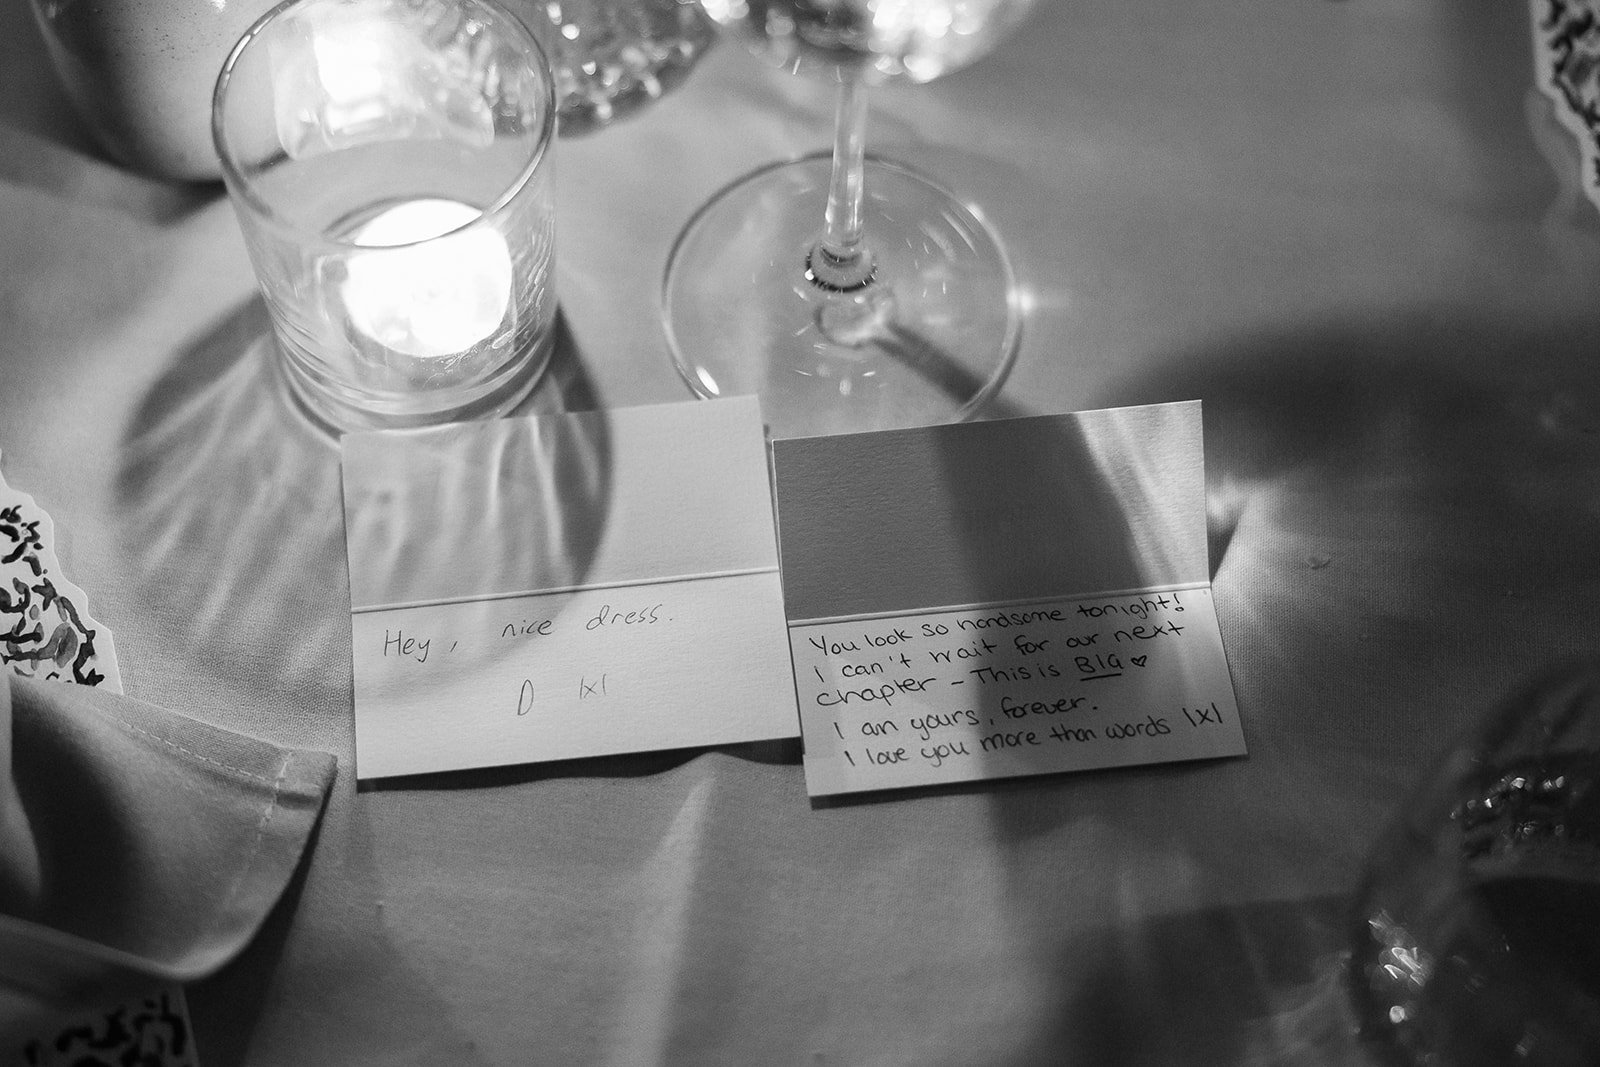 Hey, nice dress.
D |x|
You look so handsome tonight!
I can't wait for our next
chapter - This is BIG ♥
I am yours, forever.
I love you more than words |x|